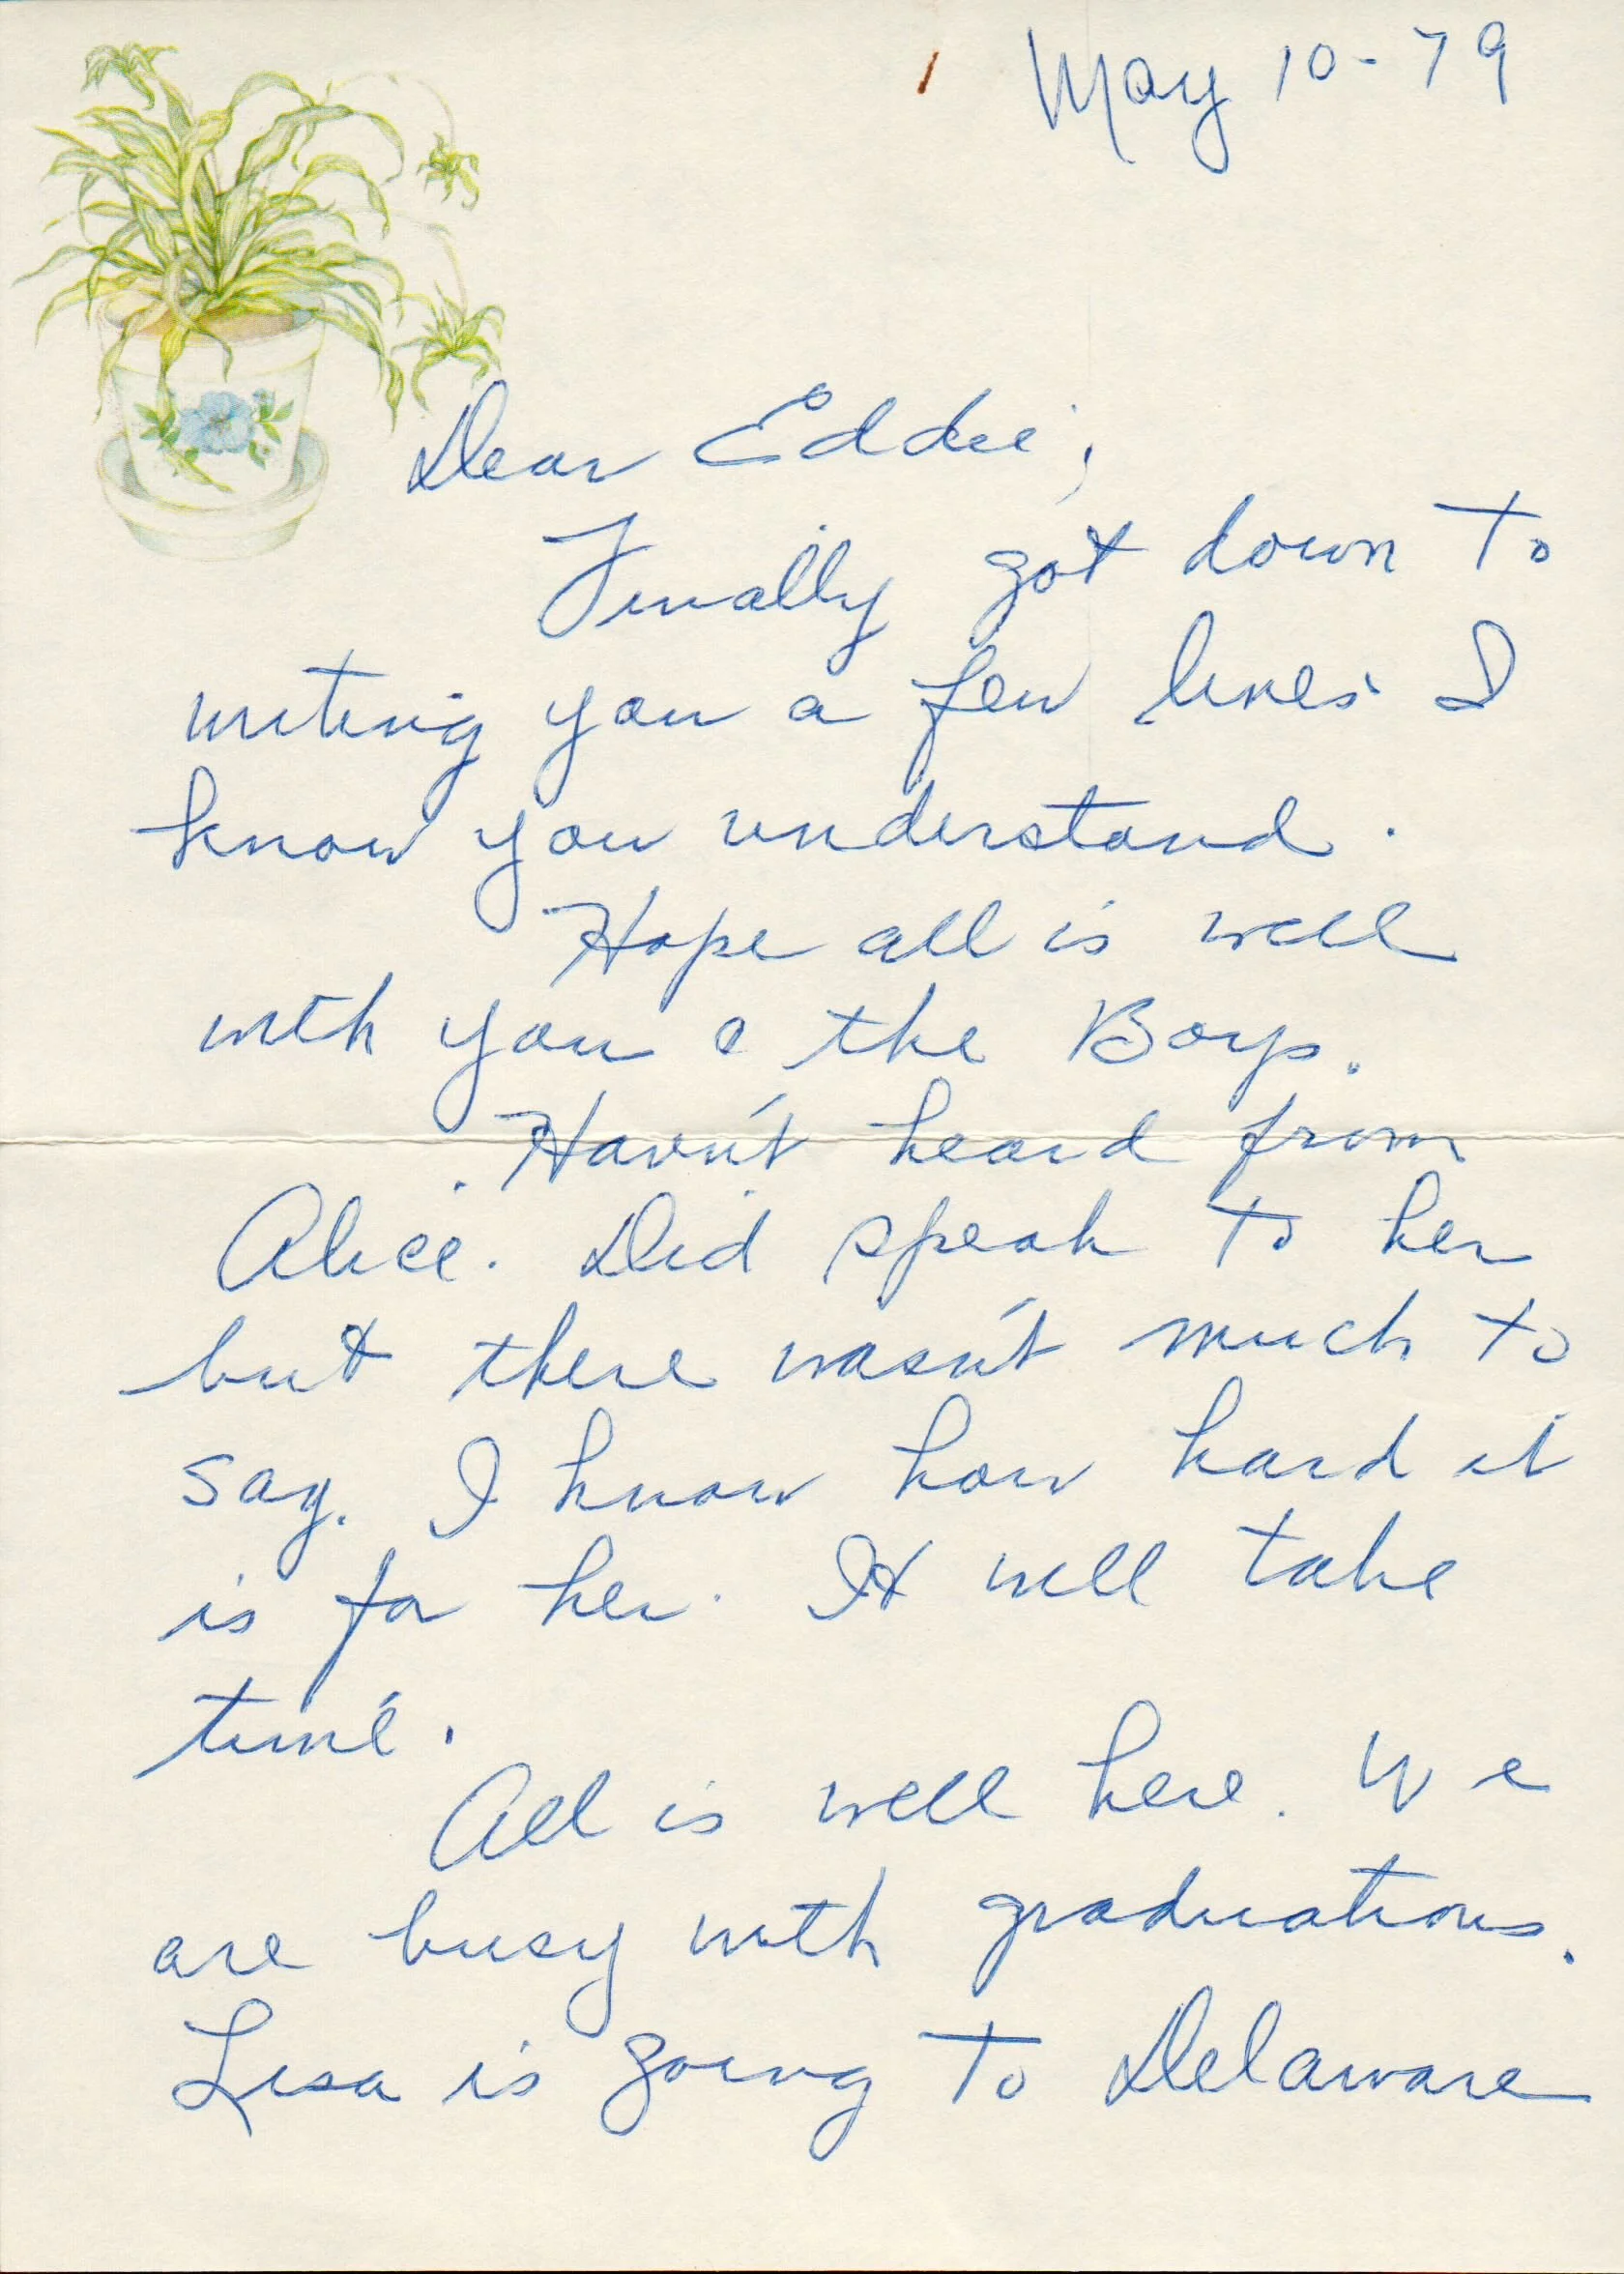 May 10-79
Dear Eddie,
Finally got down to
writing you a few lines I
know you understand.
Hope all is well
with you & the Boys.
Havn't heard from
Alice. Did speak to her
but there wasn't much to
say. I know how hard it
is for her. It will take
time.
All is well here. We
are busy with graduations.
Lisa is going to Delaware